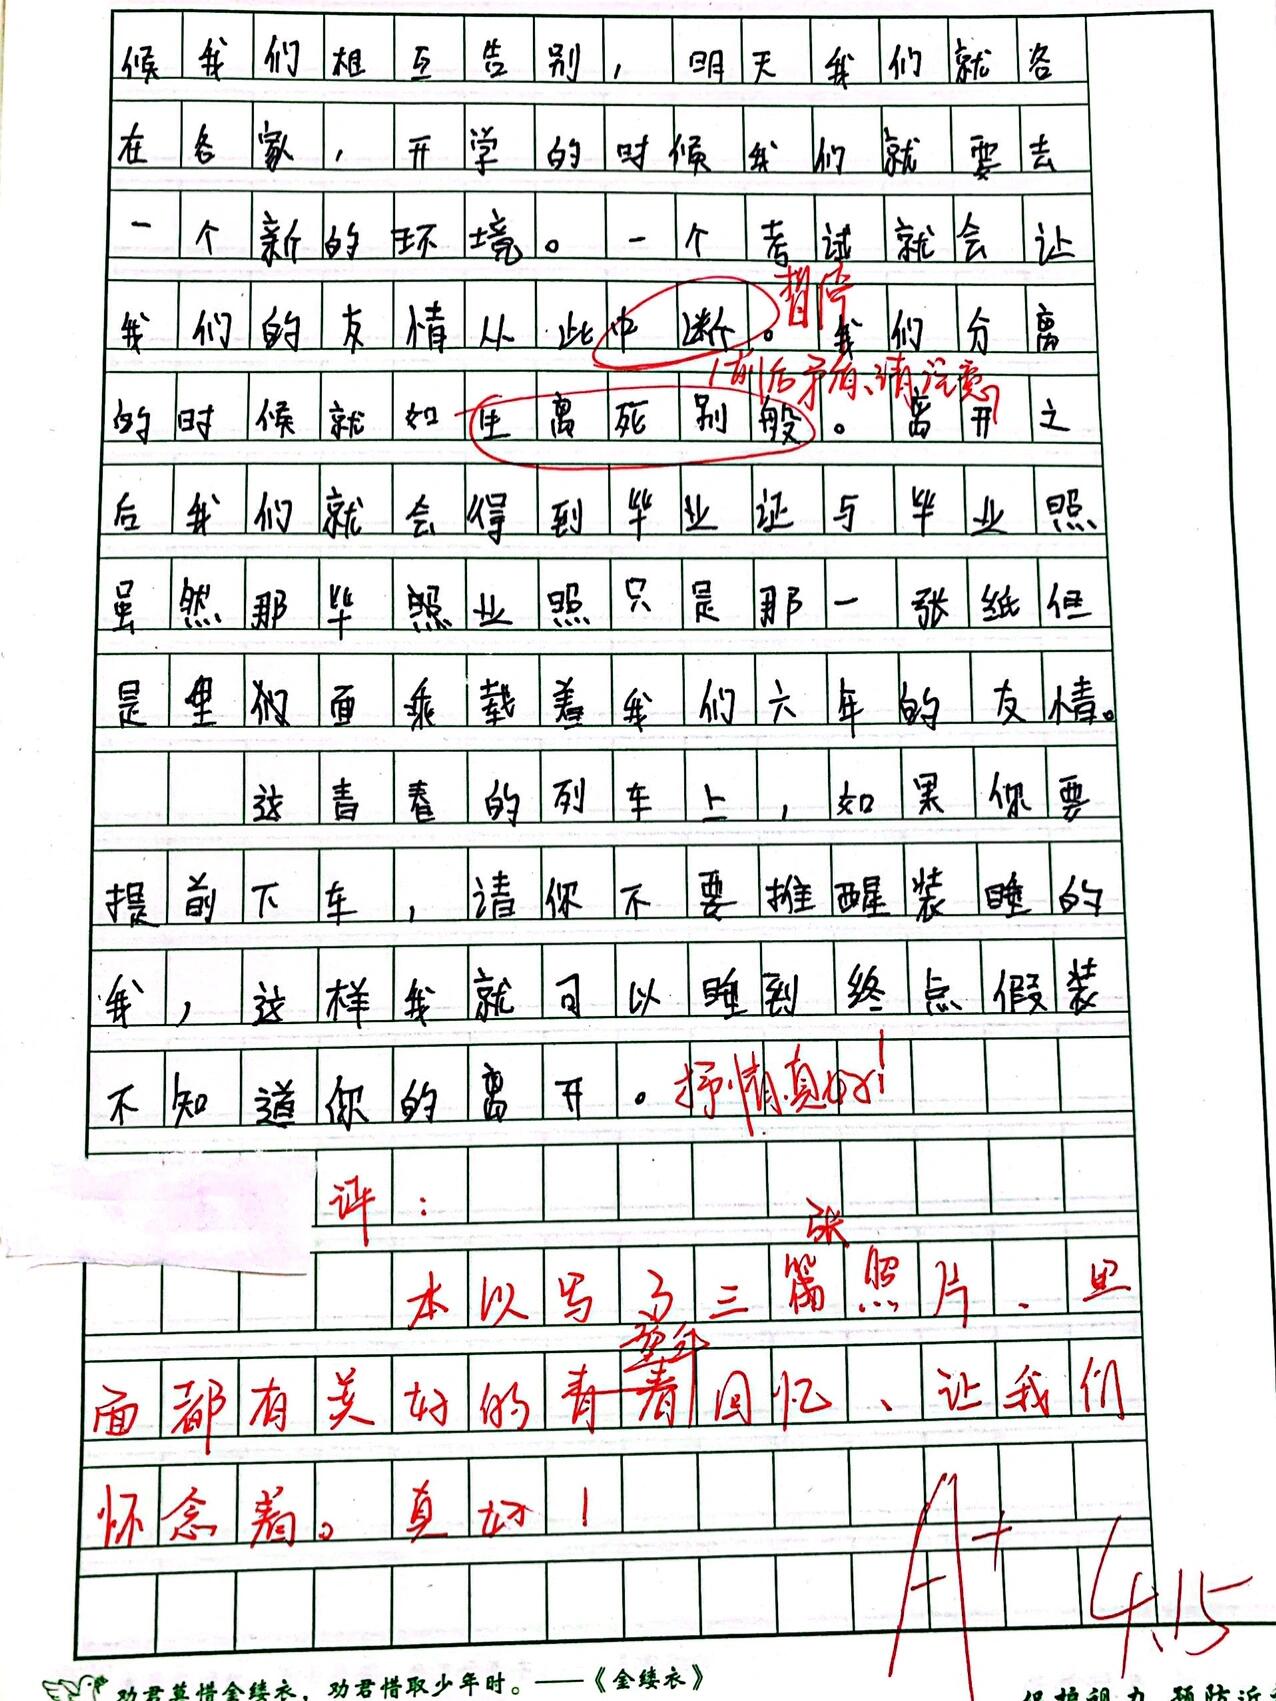 候我们相互告别，明天我们就各
在各家，开学的时候我们就要去
一个新的环境。一个考试就会让
暂停
我们的友情从此中断。我们分离
前后矛盾、请注意
的时候就如生离死别般。离开之
后我们就会得到毕业证与毕业照
虽然那毕照业照只是那一张纸但
是里们面乘载着我们六年的友情。
这青春的列车上，如果你要
提前下车，请你不要推醒装睡的
我，这样我就可以睡到终点假装
不知道你的离开。抒情真好！
评：
张
本以写了三篇照片、里
面都有美好的青春回忆、让我们
怀念着。真好！
A+ 4.15
劝君莫惜金缕衣，劝君惜取少年时。——《金缕衣》
保护视力 预防近